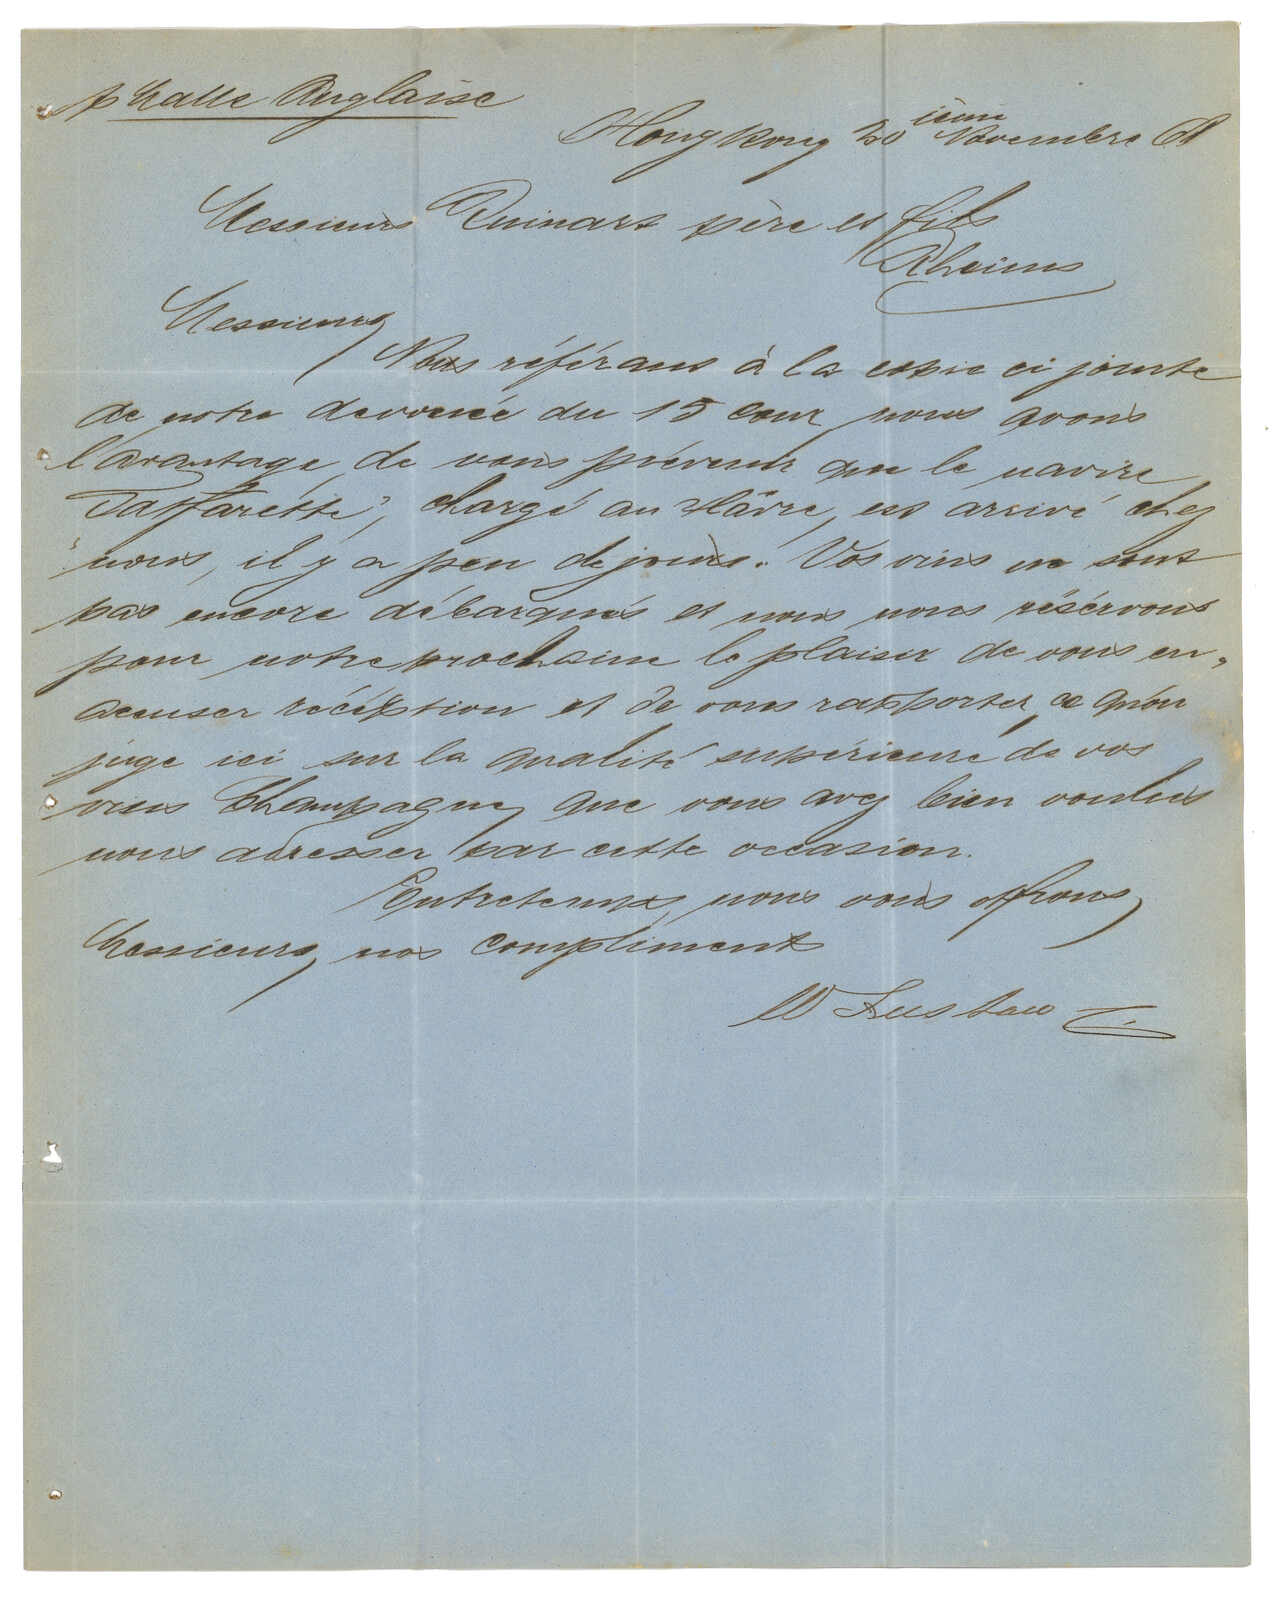 p Malle Anglaise
Hongkong 30 ième Novembre 61
Messieurs Ruinart père et fils
Rheims
Messieurs,
Nous référans à la copie ci jointe
de notre devouée du 15 Cour nous avons
l'avantage de vous prévenir que le navire
"Taffarette", chargé au Hâvre, est arrivé chez
nous, il y a peu de jours. Vos vins ne sont
pas encore débarqués et nous nous résérvons
pour notre prochaine le plaisir de vous en
accuser récéption et de vous rapporter, ce qu'on
juge ici sur la qualité supérieure de vos
vins Champagne, que vous avez bien voulus
nous adresser par cette occasion.
Entretemps, nous vous offrons,
Messieurs, nos compliments
W Pustau